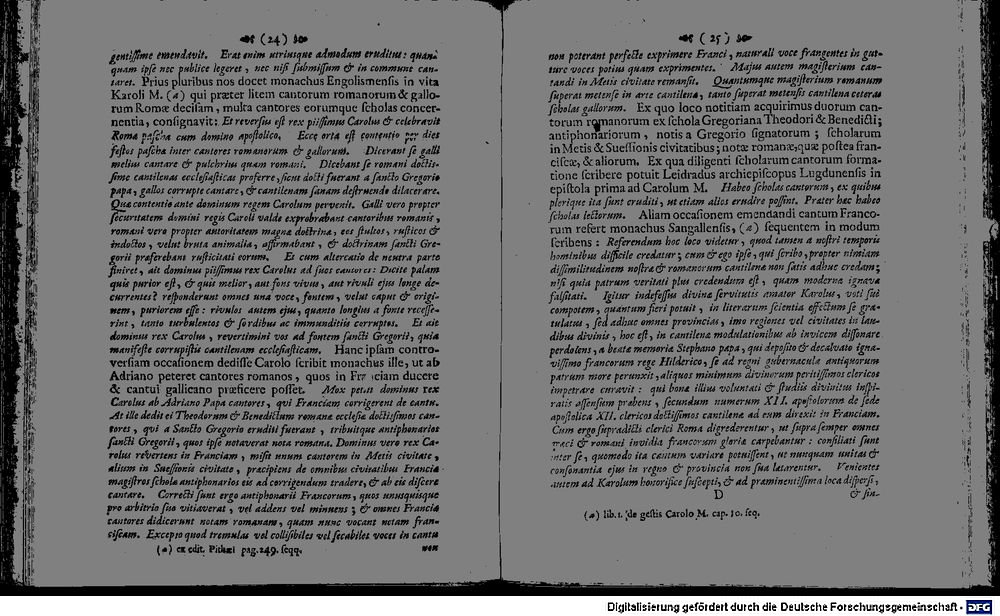 (24)
gentissime emendavit. Erat enim utriusque admodum eruditus: quan-
quam ipse nec publice legeret, nec nisi submissum & in commune can-
taret. Prius pluribus nos docet monachus Engolismensis in vita
Karoli M. (a) qui præter litem cantorum romanorum & gallo-
rum Romæ decisam, multa cantores eorumque scholas concer-
nentia, consignavit: Et reversus est rex piissimus Carolus & celebravit
Roma pascha cum domino apostolico. Ecce orta est contentio per dies
festos pascha inter cantores romanorum & gallorum. Dicerant se galli
melius cantare & pulchrius quam romani. Dicebant se romani doctis-
sime cantilenas ecclesiasticas proferre, sicut docti fuerant a sancto Gregorio
papa, gallos corrupte cantare, & cantilenam sanam destruendo dilacerare.
Qua contentio ante dominum regem Carolum pervenit. Galli vero propter
securitatem domini regis Caroli valde exprobrabant cantoribus romanis,
romani vero propter autoritatem magna doctrina, eos stultos, rusticos &
indoctos, velut bruta animalia, affirmabant, & doctrinam sancti Gre-
gorii praferebant rusticitati eorum. Et cum altercatio de neutra parte
finiret, ait dominus piissimus rex Carolus ad suos cantores: Dicite palam
quis purior est, & quis melior, aut fons vivus, aut rivuli ejus longe de-
currentes? responderunt omnes una voce, fontem, velut caput & origi-
nem, puriorem esse: rivulos autem ejus, quanto longius a fonte recesse-
rint, tanto turbulentos & sordibus ac immunditiis corruptos. Et ait
dominus rex Carolus, revertimini vos ad fontem sancti Gregorii, quia
manifeste corrupistis cantilenam ecclesiasticam. Hanc ipsam contro-
versiam occasionem dedisse Carolo scribit monachus ille, ut ab
Adriano peteret cantores romanos, quos in Franciam duceret
& cantui gallicano præficere posset. Mox petiit dominus rex
Carolus ab Adriano Papa cantores, qui Franciam corrigerent de cantu.
At ille dedit ei Theodorum & Benedictum romana ecclesia doctissimos can-
tores, qui a Sancto Gregorio eruditi fuerant, tribuitque antiphonarios
sancti Gregorii, quos ipse notaverat nota romana. Dominus vero rex Ca-
rolus revertens in Franciam, misit unum cantorem in Metis civitate,
alium in Suessionis civitate, præcipiens de omnibus civitatibus Francia
magistros schola antiphonarios eis ad corrigendum tradere, & ab eis discere
cantare. Correcti sunt ergo antiphonarii Francorum, quos unusquisque
pro arbitrio suo vitiaverat, vel addens vel minuens; & omnes Francia
cantores didicerunt notam romanam, quam nunc vocant notam fran-
ciscam. Excepto quod tremulas vel collisibiles vel secabiles voces in cantu
(a) ex edit. Pithæi pag. 249. seqq.
non
(25)
non poterant perfecte exprimere Franci, naturali voce frangentes in gut-
ture voces potius quam exprimentes. Majus autem magisterium can-
tandi in Metis civitate remansit. Quantumque magisterium romanum
superat metense in arte cantilena, tanto superat metensis cantilena ceteras
scholas gallorum. Ex quo loco notitiam acquirimus duorum can-
torum romanorum ex schola Gregoriana Theodori & Benedicti;
antiphonariorum, notis a Gregorio signatorum; scholarum
in Metis & Suessionis civitatibus; notæ romanæ, quæ postea fran-
ciscæ, & aliorum. Ex qua diligenti scholarum cantorum forma-
tione scribere potuit Leidradus archiepiscopus Lugdunensis in
epistola prima ad Carolum M. Habeo scholas cantorum, ex quibus
plerique ita sunt eruditi, ut etiam alios erudire possint. Prater hæc habeo
scholas lectorum. Aliam occasionem emendandi cantum Franco-
rum refert monachus Sangallensis, (a) sequentem in modum
scribens: Referendum hoc loco videtur, quod tamen a nostri temporis
hominibus difficile credatur; cum & ego ipse, qui scribo, propter nimiam
dissimilitudinem nostra & romanorum cantilena non satis adhuc credam;
nisi quia patrum veritati plus credendum est, quam moderna ignava
falsitati. Igitur indefessus divina servitutis amator Karolus, voti sui
compotem, quantum fieri potuit, in literarum scientia effectum se gra-
tulatus, sed adhuc omnes provincias, imo regiones vel civitates in lau-
dibus divinis, hoc est, in cantilena modulationibus ab invicem dissonare
perdolens, a beata memoria Stephano papa, qui deposito & decalvato igna-
vissimo francorum rege Hilderico, se ad regni gubernacula antiquorum
patrum more perunxit, aliquos minimum divinorum peritissimos clericos
impetrare curavit: qui bona illius voluntati & studiis divinitus inspi-
ratis assensum prabens, secundum numerum XII. apostolorum de sede
apostolica XII. clericos doctissimos cantilena ad eum direxit in Franciam.
Cum ergo supradicti clerici Roma digrederentur, ut supra semper omnes
græci & romani invidia francorum gloria carpebantur: consiliati sunt
inter se, quomodo ita cantum variare potuissent, ut nunquam unitas &
consonantia ejus in regno & provincia non sua latarentur. Venientes
autem ad Karolum honorifice suscepti, & ad praminentissima loca dispersi,
D
& sin-
(a) lib. 1. de gestis Carolo M. cap. 10. seq.
Digitalisierung gefördert durch die Deutsche Forschungsgemeinschaft - DFG